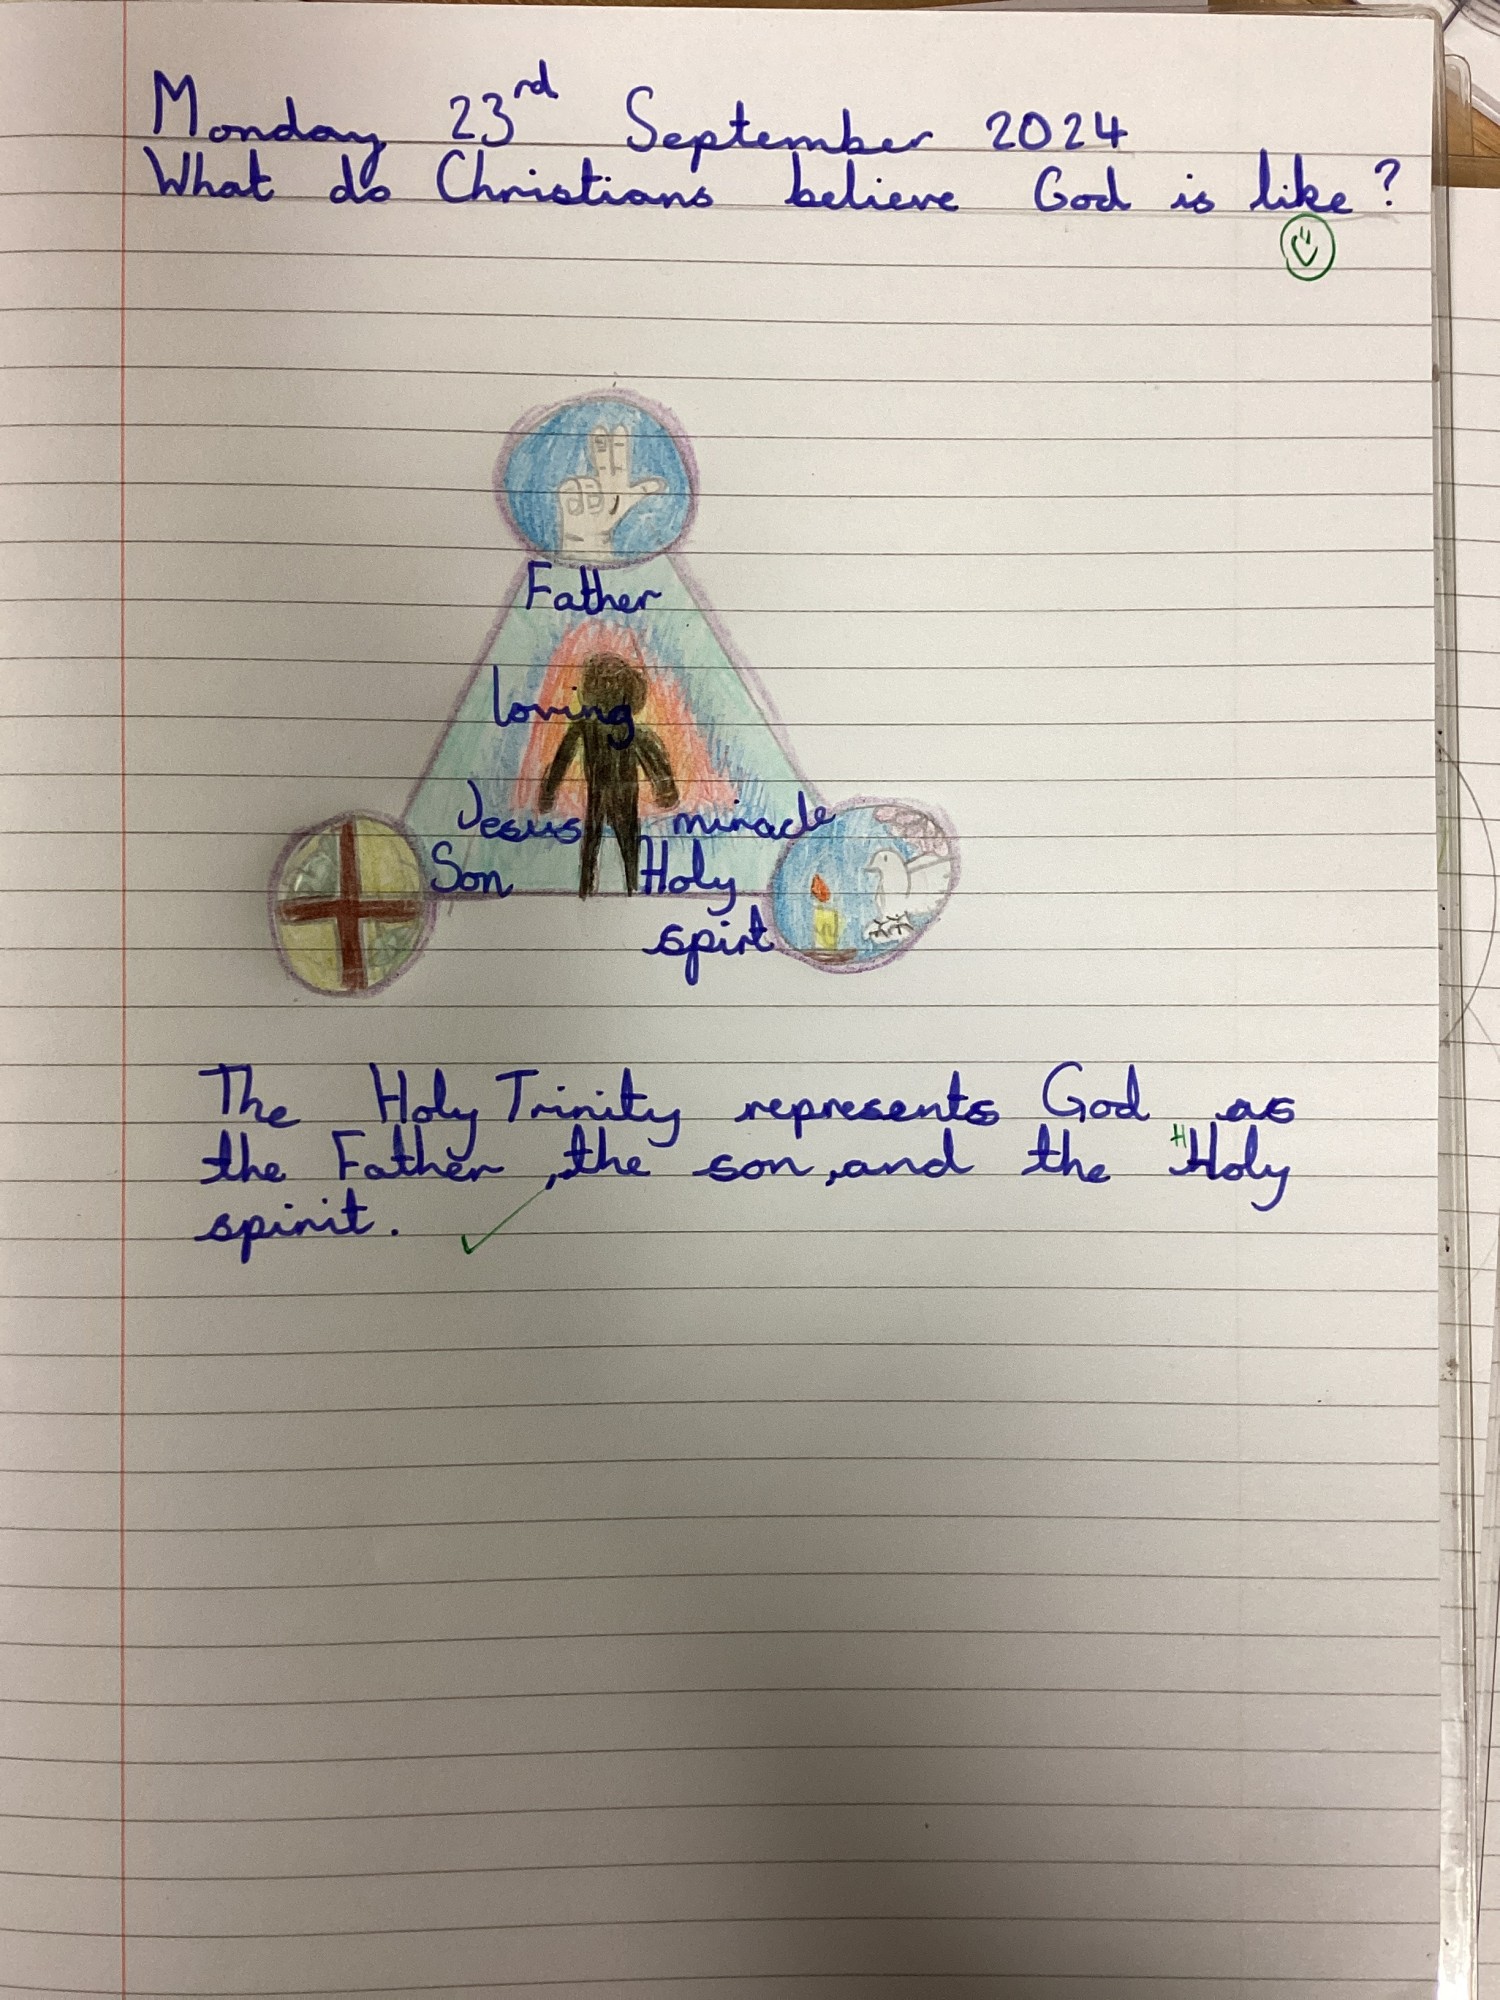 Monday 23rd September 2024
What do Christians believe God is like?
Father
loving
Jesus miracle
Son Holy
spirt
The Holy Trinity represents God as
the Father, the son, and the HHoly
spirit.